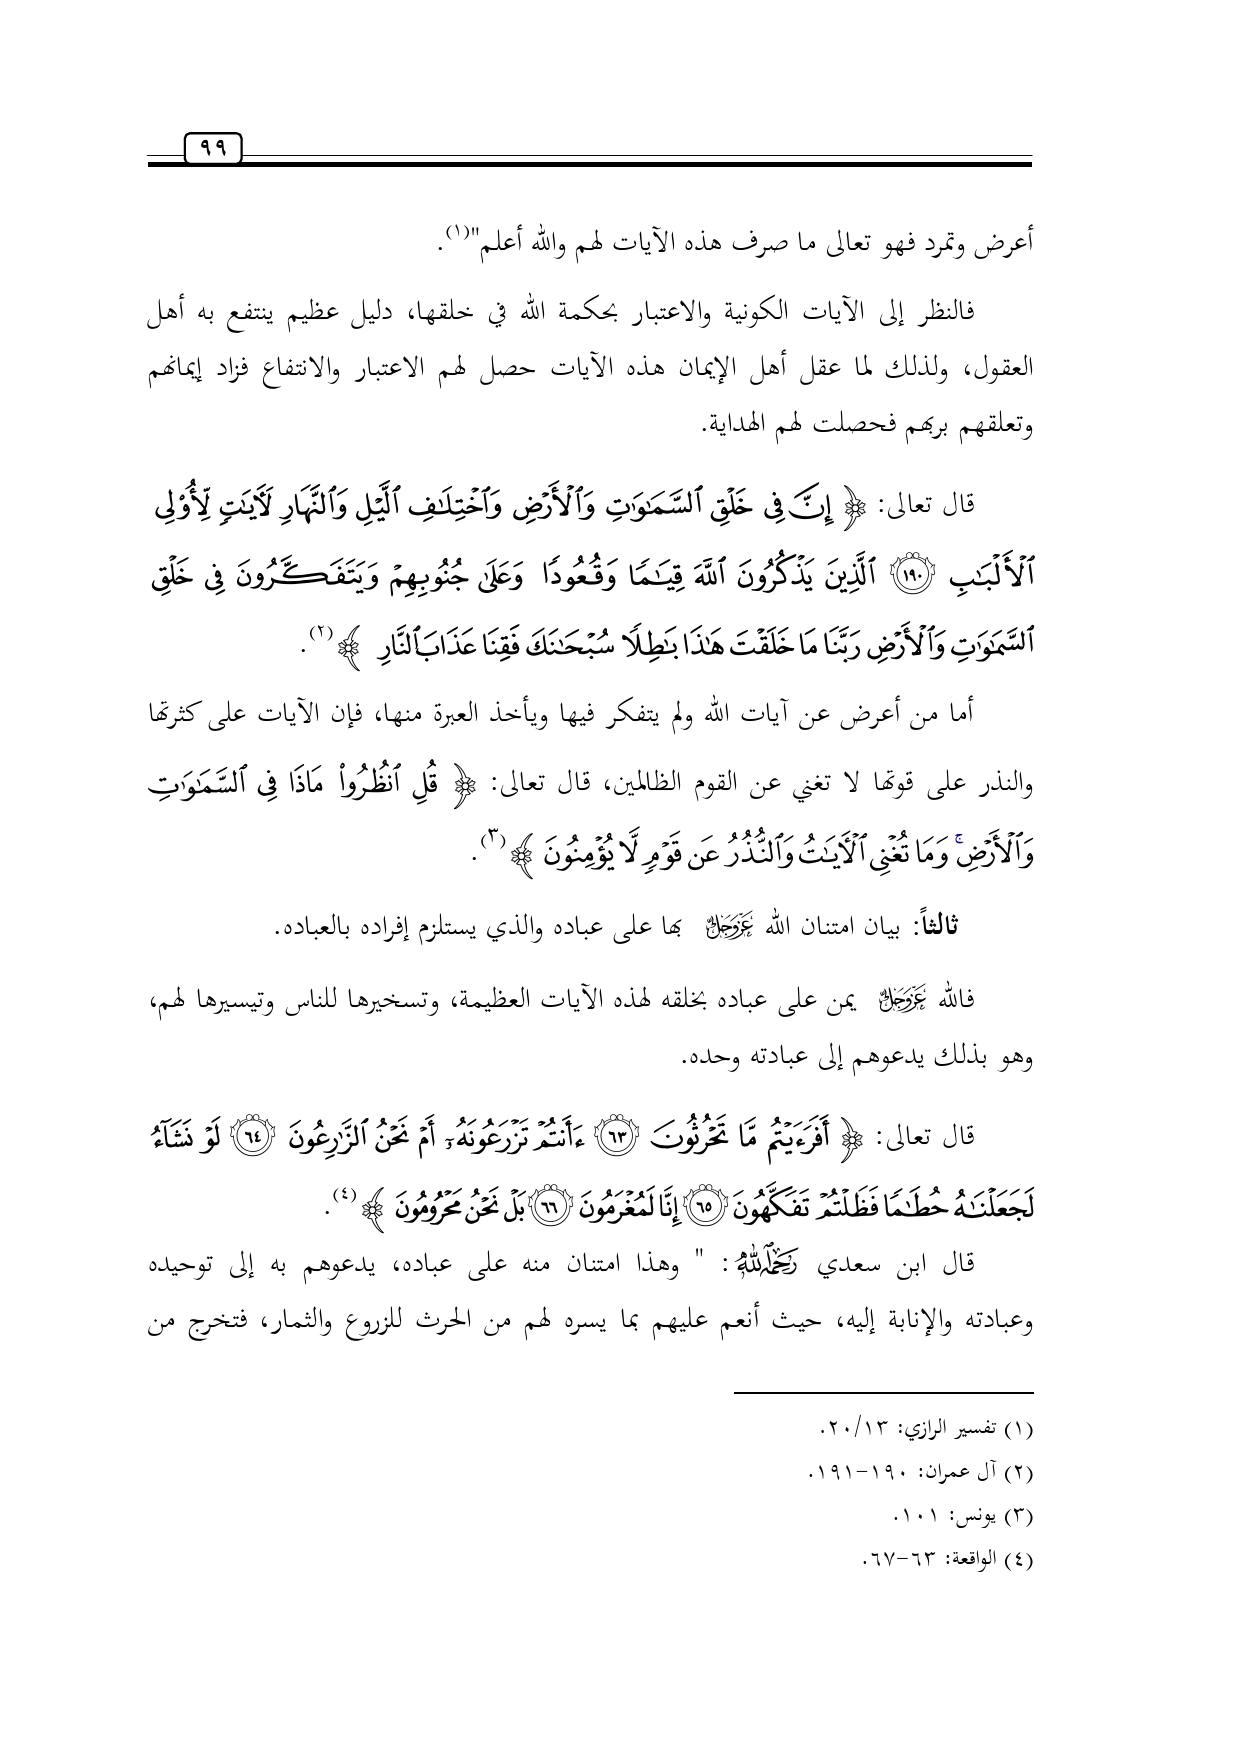 ٩٩
أعرض وتمرد فهو تعالى ما صرف هذه الآيات لهم والله أعلم"(١).
فالنظر إلى الآيات الكونية والاعتبار بحكمة الله في خلقها، دليل عظيم ينتفع به أهل
العقول، ولذلك لما عقل أهل الإيمان هذه الآيات حصل لهم الاعتبار والانتفاع فزاد إيمانهم
وتعلقهم بربهم فحصلت لهم الهداية.
قال تعالى: ﴿ إِنَّ فِى خَلْقِ ٱلسَّمَٰوَٰتِ وَٱلْأَرْضِ وَٱخْتِلَٰفِ ٱلَّيْلِ وَٱلنَّهَارِ لَءَايَٰتٍ لِّأُو۟لِى
ٱلْأَلْبَٰبِ ١٩٠ ٱلَّذِينَ يَذْكُرُونَ ٱللَّهَ قِيَٰمًا وَقُعُودًا وَعَلَىٰ جُنُوبِهِمْ وَيَتَفَكَّرُونَ فِى خَلْقِ
ٱلسَّمَٰوَٰتِ وَٱلْأَرْضِ رَبَّنَا مَا خَلَقْتَ هَٰذَا بَٰطِلًا سُبْحَٰنَكَ فَقِنَا عَذَابَ ٱلنَّارِ ﴾(٢).
أما من أعرض عن آيات الله ولم يتفكر فيها ويأخذ العبرة منها، فإن الآيات على كثرتها
والنذر على قوتها لا تغني عن القوم الظالمين، قال تعالى: ﴿ قُلِ ٱنظُرُوا۟ مَاذَا فِى ٱلسَّمَٰوَٰتِ
وَٱلْأَرْضِ ۚ وَمَا تُغْنِى ٱلْءَايَٰتُ وَٱلنُّذُرُ عَن قَوْمٍ لَّا يُؤْمِنُونَ ﴾(٣).
ثالثاً: بيان امتنان الله عَزَّوَجَلَّ بها على عباده والذي يستلزم إفراده بالعباده.
فالله عَزَّوَجَلَّ يمن على عباده بخلقه لهذه الآيات العظيمة، وتسخيرها للناس وتيسيرها لهم،
وهو بذلك يدعوهم إلى عبادته وحده.
قال تعالى: ﴿ أَفَرَءَيْتُم مَّا تَحْرُثُونَ ٦٣ ءَأَنتُمْ تَزْرَعُونَهُۥٓ أَمْ نَحْنُ ٱلزَّٰرِعُونَ ٦٤ لَوْ نَشَآءُ
لَجَعَلْنَٰهُ حُطَٰمًا فَظَلْتُمْ تَفَكَّهُونَ ٦٥ إِنَّا لَمُغْرَمُونَ ٦٦ بَلْ نَحْنُ مَحْرُومُونَ ﴾(٤).
قال ابن سعدي رَحِمَهُ ٱللَّهُ: " وهذا امتنان منه على عباده، يدعوهم به إلى توحيده
وعبادته والإنابة إليه، حيث أنعم عليهم بما يسره لهم من الحرث للزروع والثمار، فتخرج من
(١) تفسير الرازي: ٢٠/١٣.
(٢) آل عمران: ١٩٠-١٩١.
(٣) يونس: ١٠١.
(٤) الواقعة: ٦٣-٦٧.